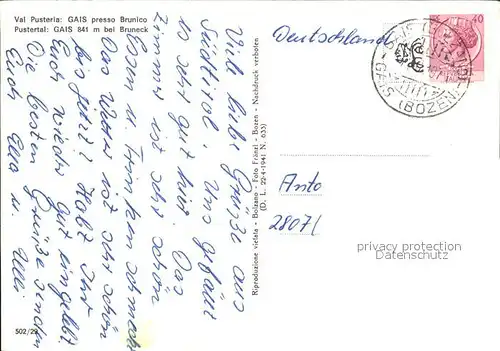 Val Pusteria: GAIS presso Brunico
Pustertal: GAIS 841 m bei Bruneck
Viele liebe Grüße aus
Südtirol. Uns gefällt
es sehr gut hier. Das
Zimmer ist sehr schön
Essen u. Trinken schmeckt
Das Wetter ist sehr schön
bis jetzt! Habt Ihr
Euch wieder gut eingelebt
Die besten Grüße senden
Euch u. Uli
502/29
Riproduzione vietata - Bolzano - Foto Fränzl - Bozen - Nachdruck verboten
(D. L. 22-4-1941 N. 633)
Deutschland
40
GAIS (BOZEN)
Anto
28071
privacy protection
watermark